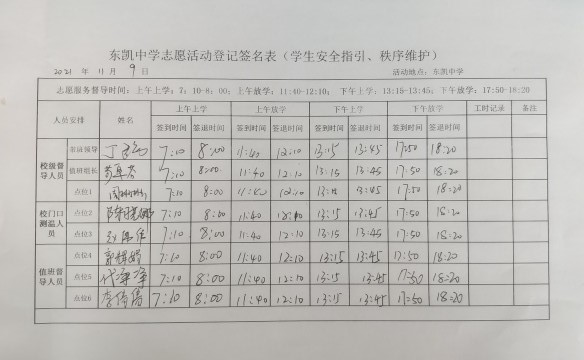 东凯中学志愿活动登记签名表（学生安全指引、秩序维护）
2021 年 11 月 9 日 活动地点：东凯中学
志愿服务督导时间：上午上学：7：10-8：00；上午放学：11:40-12:10；下午上学：13:15-13:45；下午放学：17:50-18:20
人员安排 姓名 上午上学 上午放学 下午上学 下午放学 工时记录 备注
签到时间 签退时间 签到时间 签退时间 签到时间 签退时间 签到时间 签退时间
校级督导人员 7:10 8:00 11:40 12:10 13:15 13:45 17:50 18:20
值班组长 7:10 8:00 11:40 12:10 13:15 13:45 17:50 18:20
点位1 7:10 8:00 11:40 12:10 13:45 17:50 18:20
校门口测温人员 点位2 7:10 8:00 11:40 13:15 13:45 17:50 18:20
点位3 7:10 8:00 11:40 12:10 13:15 13:45 17:50 18:20
值班督导人员 点位4 7:10 8:00 11:40 12:10 13:15 13:45 17:50 18:20
点位5 7:10 8:00 11:40 12:10 13:15 13:45 17:50 18:20
点位6 7:10 8:00 11:40 12:10 13:15 13:45 17:50 18:20